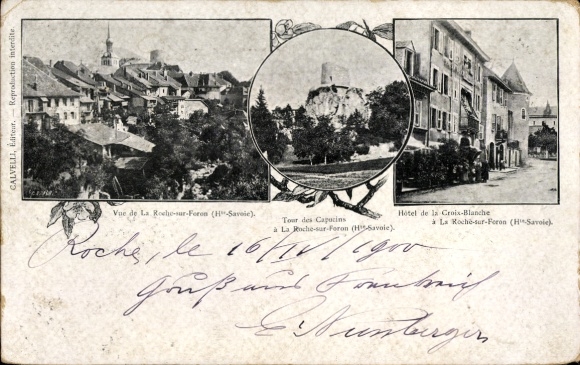 CALVELLI, Éditeur. — Reproduction interdite.
Vue de La Roche-sur-Foron (Hte-Savoie).
Tour des Capucins
à La Roche-sur-Foron (Hte-Savoie).
Hôtel de la Croix-Blanche
à La Roche-sur-Foron (Hte-Savoie).
Roche, le 16/IV/1900
Gruß aus Frankreich
E. Nürnberger